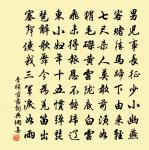 男兒事長征少小幽燕
客賭勝馬蹄下由來輕
七尺殺人莫敢前鬚如
蝟毛磔黃雲隴底白雲
飛未得報恩不能歸遼
東小婦年十五慣彈琵
琶解歌舞今為羌笛出
塞聲使我三軍淚如雨